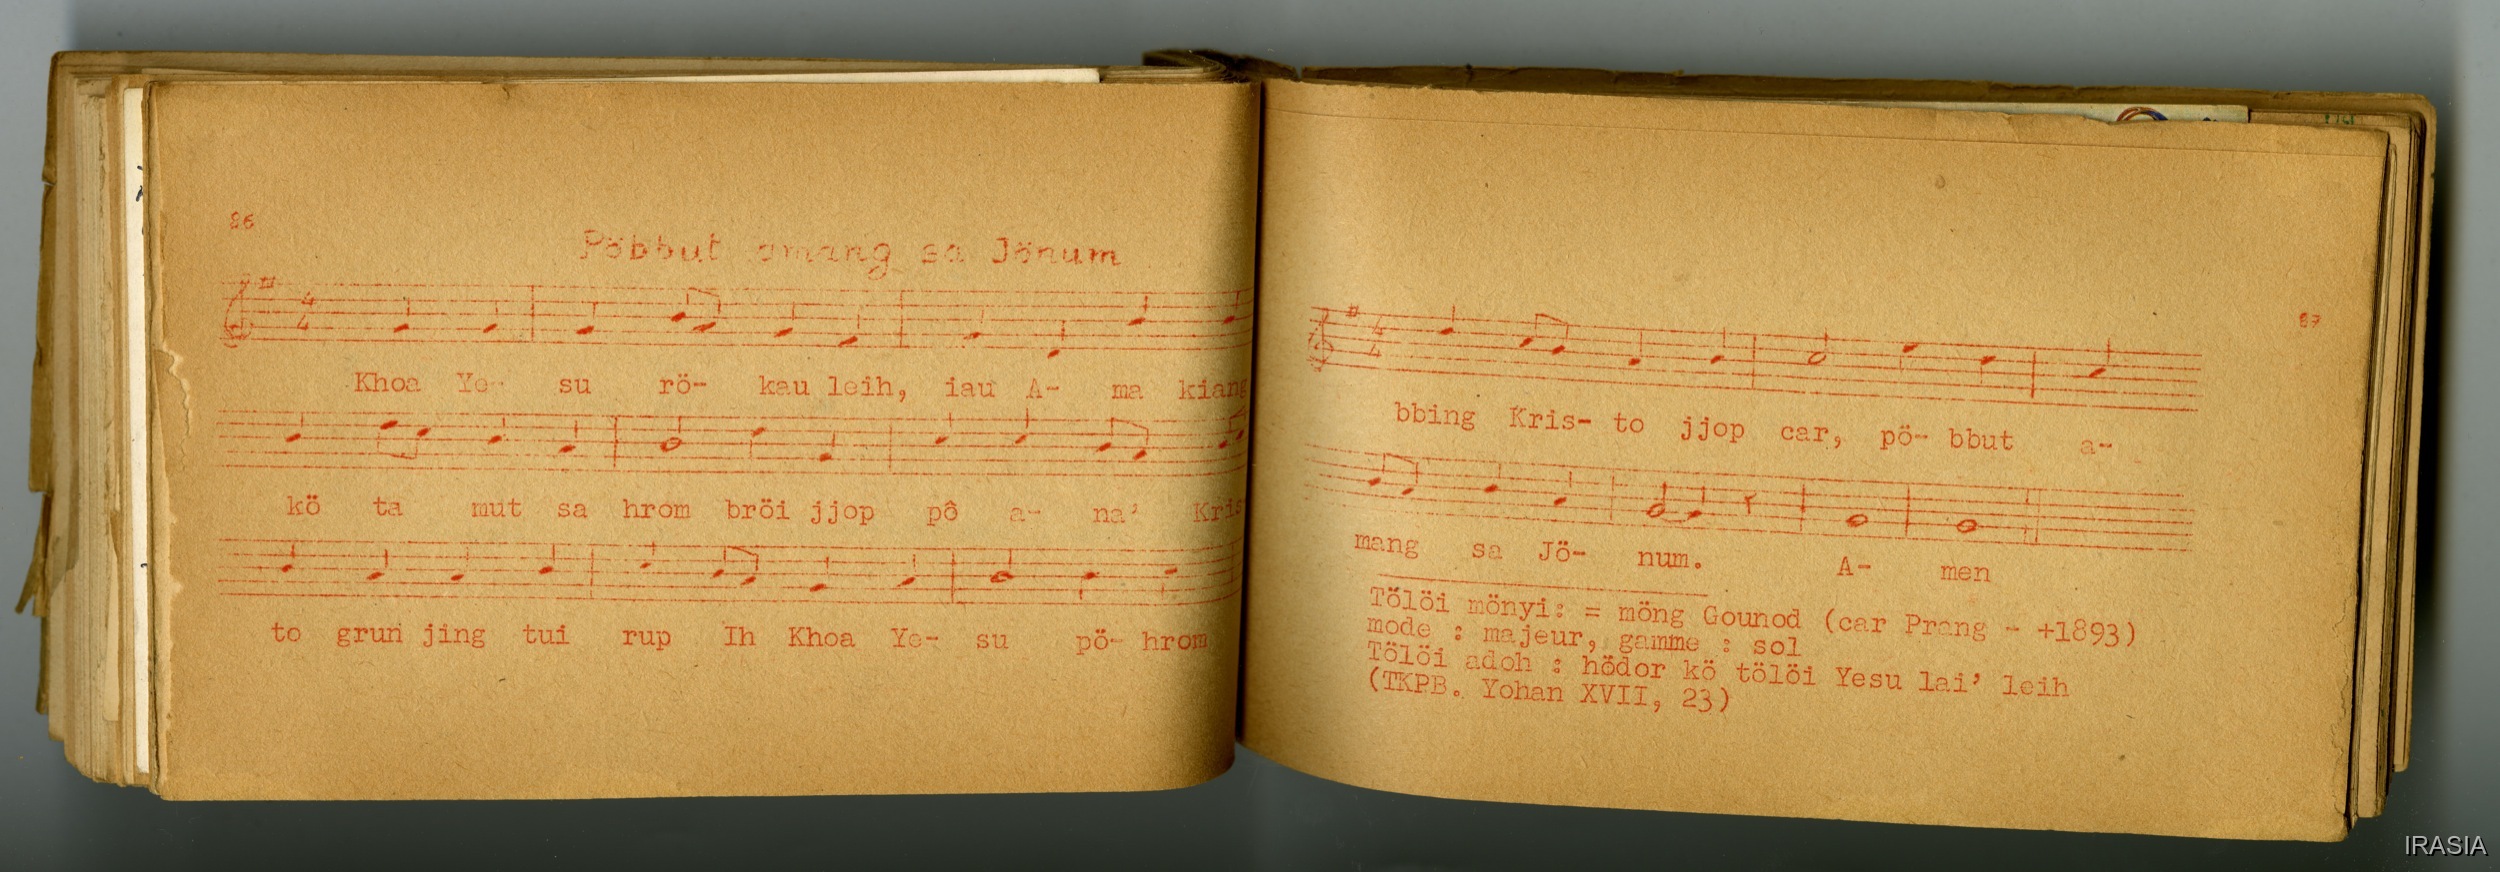 86
Pöbbut amang sa Jönum
Khoa Ye- su rö- kau leih, iau A- ma kiang
kö ta mut sa hrom bröi jjop pô a- na' Kris
to grun jing tui rup Ih Khoa Ye- su pö- hrom
87
bbing Kris- to jjop car, pö- bbut a-
mang sa Jö- num. A- men
Tölöi mönyi: = möng Gounod (car Prang - +1893)
mode : majeur, gamme : sol
Tölöi adoh : hödor kö tölöi Yesu lai' leih
(TKPB. Yohan XVII, 23)
IRASIA